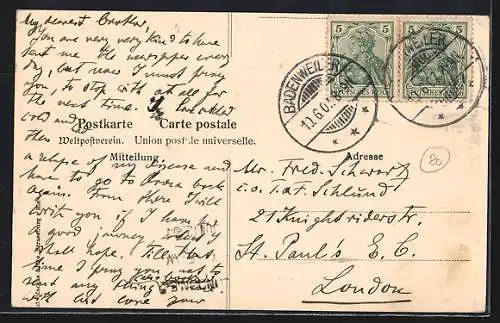 My dearest Brother,
You are very very kind to have
sent me the newspaper every
day, but now I must pray
you, to stop with at all for
the next time. I have added
cold and
Postkarte Carte postale
Weltpostverein. Union postale universelle.
Mitteilung.
Adresse
then
a relapse of my disease and
have to go to Davos back
again. From there I will
write you if I have had
a good journey, what I
shall hope. Till that
time I pray you not to
send any thing
with best love your
BADENWEILER
10.6.0
WEILER
5 5
DEUTSCHES REICH
5 5
20
Mr. Fred. Schwartz
i. o. t. at. Schlund
21 Knightriderstr.
St. Paul's E. C.
London